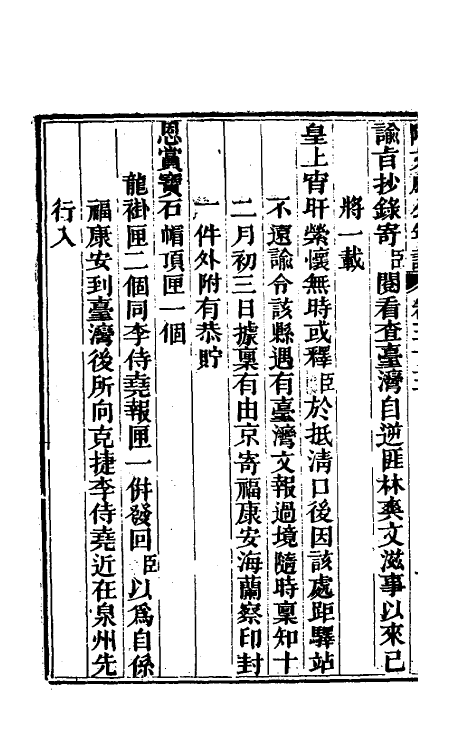 諭旨抄錄寄臣閱看查臺灣自逆匪林爽文滋事以來已
將一載
皇上宵旰縈懷無時或釋臣於抵淸口後因該處距驛站
不遠諭令該縣遇有臺灣文報過境隨時稟知十
二月初三日據稟有由京寄福康安海蘭察印封
一件外附有恭貯
恩賞寶石帽頂匣一個
龍褂匣二個同李侍堯報匣一併發回臣以爲自係
福康安到臺灣後所向克捷李侍堯近在泉州先
行入